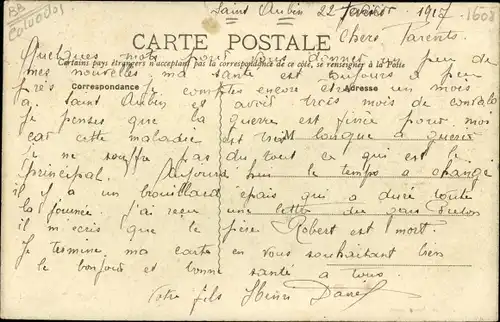 BB
Calvados
Saint Aubin 22 Février 1917
CARTE POSTALE
Chers Parents.
Quelques mots pour vous donner un peu de
Certains pays étrangers n'acceptant pas la correspondance de ce côté, se renseigner à la Poste
mes nouvelles ma santé est toujours à peu
Correspondance
Adresse
près Je comptes encore être un mois
a Saint Aubin et avoir trois mois de convale
Je penses que la guerre est finie pour moi
car cette maladie est tres longue a guerir
M
je ne souffre pas du tout ce qui est le
principal. Aujourd hui le temps a changé
il y a un brouillard épais qui a duré toute
la journée. j'ai reçu une lettre du
il m ecris que le père Robert est mort.
Je termine ma carte en vous souhaitant bien
le bonjour et bonne santé a tous.
Votre fils Henri